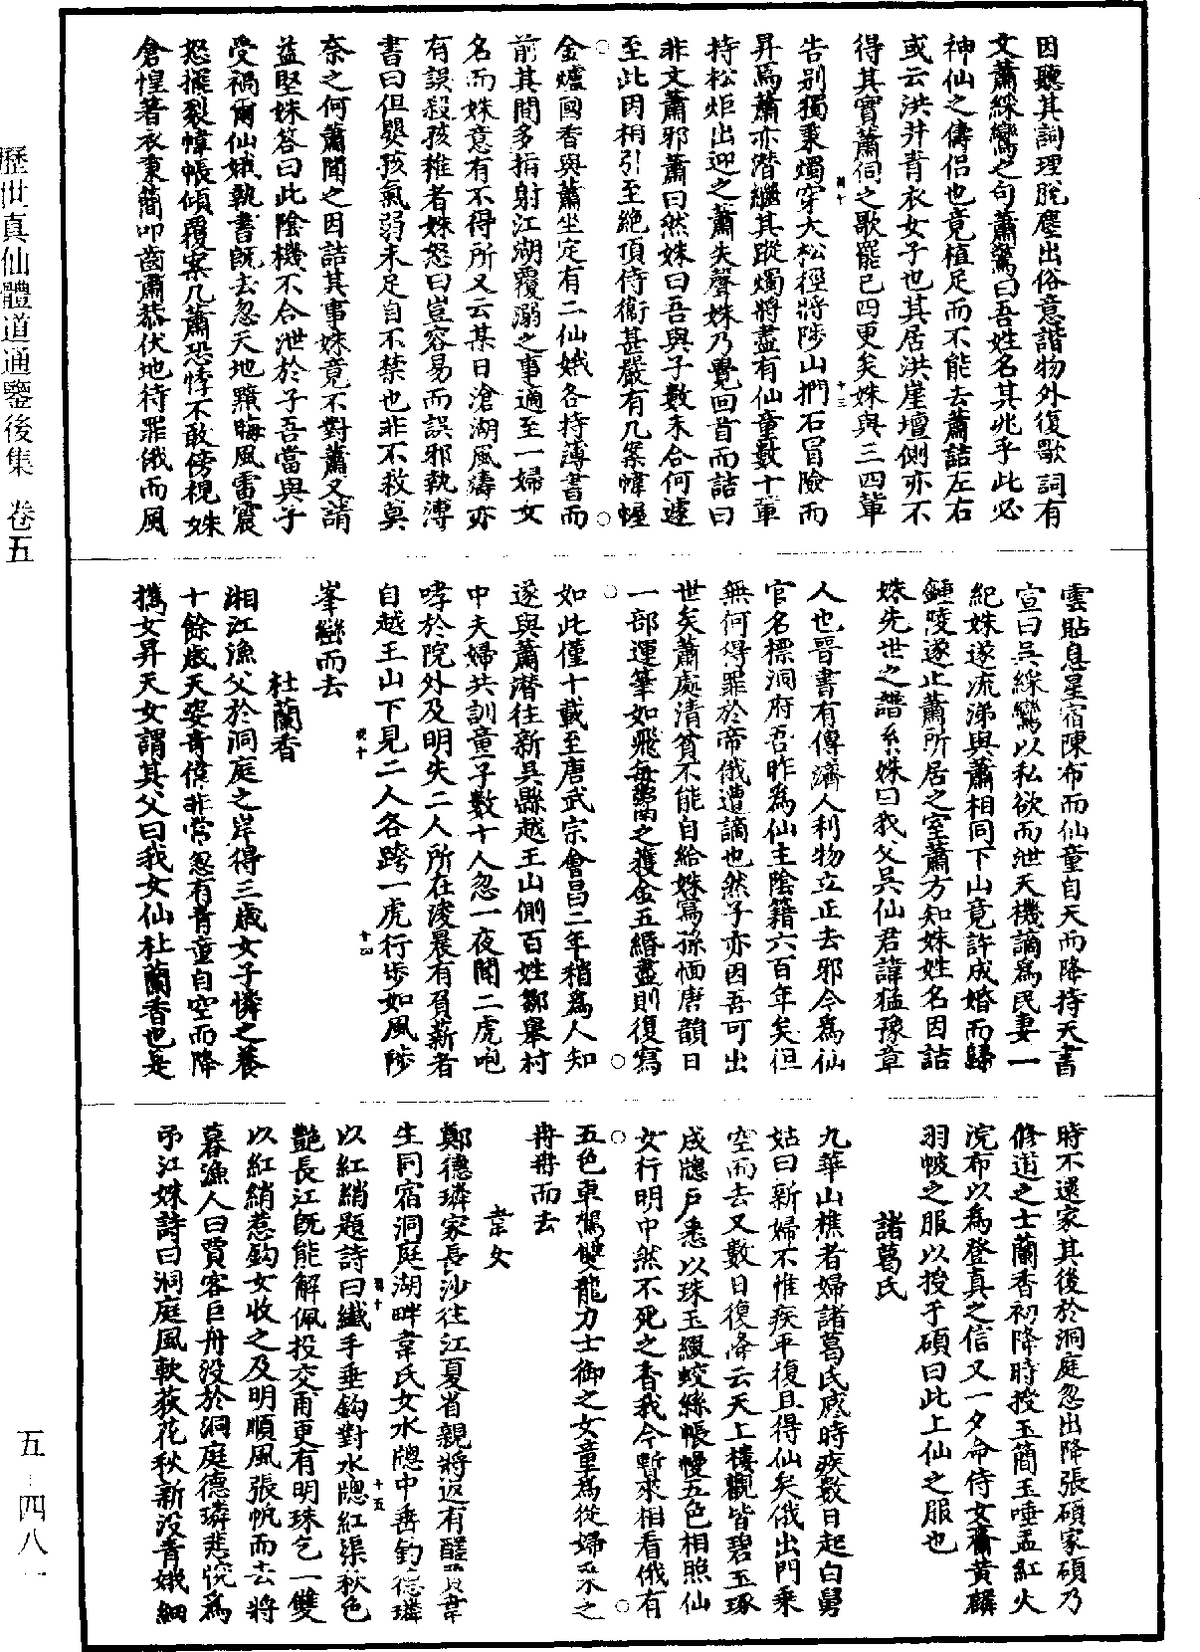 歷世真仙體道通鑒後集 卷五
五-四八一
因聽其詞理脫塵出俗意諧物外復歌詞有
文蕭綵鸞之句蕭驚曰吾姓名其兆乎此必
神仙之儔侶也竟植足而不能去蕭詰左右
或云洪井青衣女子也其居洪崖壇側亦不
得其實蕭伺之歌罷已四更矣姝與三四輩
告別獨秉燭穿大松徑將陟山捫石冒險而
昇焉蕭亦潛繼其蹤燭將盡有仙童數十輩
持松炬出迎之蕭失聲姝乃覺回首而詰曰
非文蕭邪蕭曰然姝曰吾與子數未合何遽
至此因相引至絕頂侍衛甚嚴有几案幃幄
金爐國香與蕭坐定有二仙娥各持簿書而
前其間多指射江湖覆溺之事適至一婦女
名而姝意有不得所又云某日滄湖風濤亦
有誤殺孩稚者姝怒曰豈容易而誤邪執簿
書曰但嬰孩氣弱未足自不禁也非不救莫
奈之何蕭聞之因詰其事姝竟不對蕭又請
益堅姝答曰此陰機不合泄於子吾當與子
受禍爾仙娥執書既去忽天地黯晦風雷震
怒擺裂幃帳傾覆案几蕭恐悸不敢傍視姝
倉惶著衣秉簡叩齒肅恭伏地待罪俄而風
雲貼息星宿陳布而仙童自天而降持天書
宣曰吳綵鸞以私欲而泄天機謫為民妻一
紀姝遂流涕與蕭相同下山竟許成婚而歸
鍾陵遂止蕭所居之室蕭方知姝姓名因詰
姝先世之譜系姝曰我父吳仙君諱猛豫章
人也晉書有傳濟人利物立正去邪今為仙
官名標洞府吾昨為仙主陰籍六百年矣但
無何得罪於帝俄遭謫也然子亦因吾可出
世矣蕭處清貧不能自給姝寫孫愐唐韻日
一部運筆如飛每鬻之獲金五緡盡則復寫
如此僅十載至唐武宗會昌二年稍為人知
遂與蕭潛往新吳縣越王山側百姓鄒舉村
中夫婦共訓童子數十人忽一夜聞二虎咆
哮於院外及明失二人所在淩晨有負薪者
自越王山下見二人各跨一虎行步如風陟
峯巒而去
杜蘭香
湘江漁父於洞庭之岸得三歲女子憐之養
十餘歲天姿奇偉非常忽有青童自空而降
攜女昇天女謂其父曰我女仙杜蘭香也是
時不還家其後於洞庭忽出降張碩家碩乃
修道之士蘭香初降時授玉簡玉唾盂紅火
浣布以為登真之信又一夕命侍女齎黃麟
羽帔之服以授于碩曰此上仙之服也
諸葛氏
九華山樵者婦諸葛氏感時疾數日起白舅
姑曰新婦不惟疾平復且得仙矣俄出門乘
空而去又數日復降云天上樓觀皆碧玉琢
成牕戶悉以珠玉綴蛟絲帳幔五色相照仙
女行明中然不死之香我今暫來相看俄有
五色車駕雙龍力士御之女童為從婦乘之
冉冉而去
韋女
鄭德璘家長沙往江夏省親將返有醝賈韋
生同宿洞庭湖畔韋氏女水牕中垂釣德璘
以紅綃題詩曰纖手垂鈎對水牕紅渠秋色
艷長江既能解佩投交甫更有明珠乞一雙
以紅綃惹鈎女收之及明順風張帆而去將
暮漁人曰賈客巨舟没於洞庭德璘悲惋為
弔江姝詩曰洞庭風軟荻花秋新没青娥細